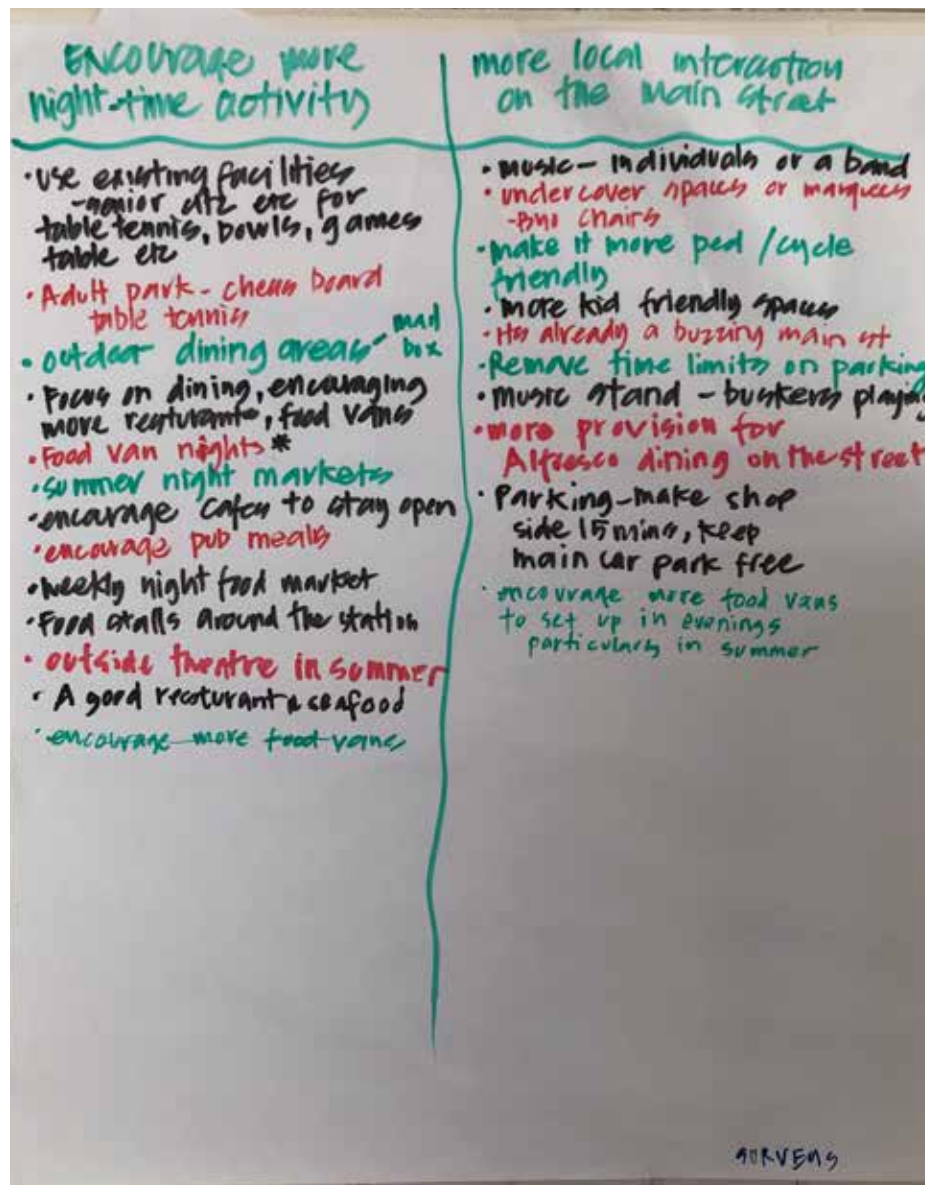 ENCOURAGE more
night-time activity
• use existing facilities
- senior citz etc for
table tennis, bowls, games
table etc
• Adult park - chess board
table tennis
• outdoor dining areas - mad
box
• Focus on dining, encouraging
more resturants, food vans
• Food van nights *
• summer night markets
• encourage cafes to stay open
• encourage pub meals
• weekly night food market
• Food stalls around the station
• outside theatre in summer
• A good resturant & seafood
• encourage more food vans
more local interaction
on the main street
• music - individuals or a band
• undercover spaces or marquees
- BYO chairs
• make it more ped / cycle
friendly
• more kid friendly spaces
• Its already a buzzing main st
• Remove time limits on parking
• music stand - buskers playing
• more provision for
Alfresco dining on the street
• Parking - make shop
side 15 mins, keep
main car park free
• encourage more food vans
to set up in evenings
particularly in summer